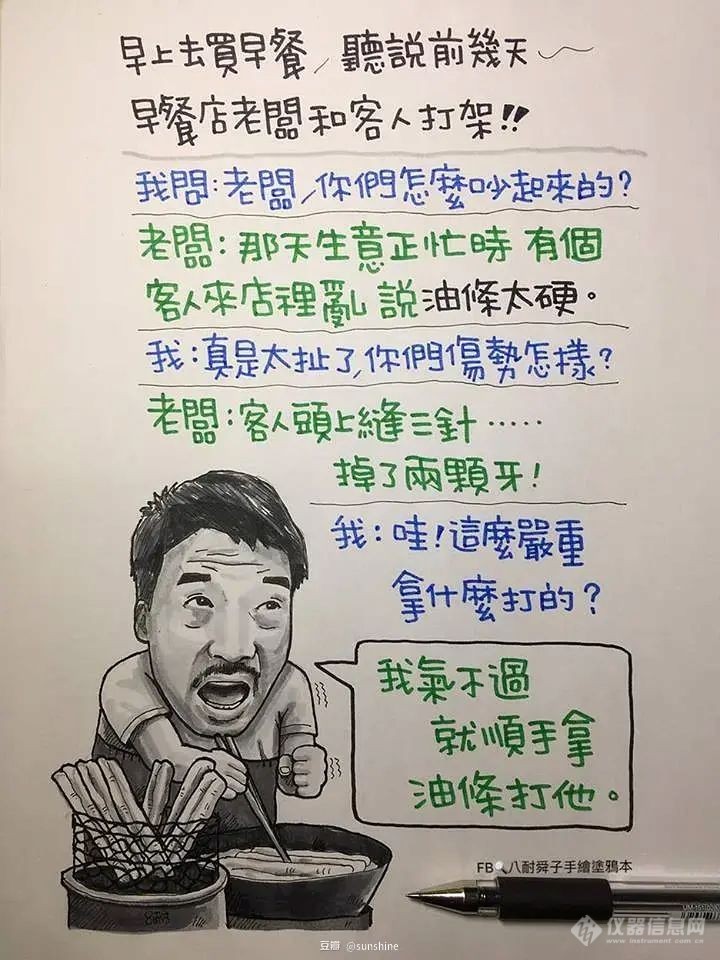 早上去買早餐，聽說前幾天～
早餐店老闆和客人打架!!
我問：老闆，你們怎麼吵起來的？
老闆：那天生意正忙時 有個
客人來店裡亂說油條太硬。
我：真是太扯了，你們傷勢怎樣？
老闆：客人頭上縫三針……
掉了兩顆牙！
我：哇！這麼嚴重
拿什麼打的？
我氣不過
就順手拿
油條打他。
FB 八耐舜子手繪塗鴉本
豆瓣 @sunshine
仪器信息网
www.instrument.com.cn